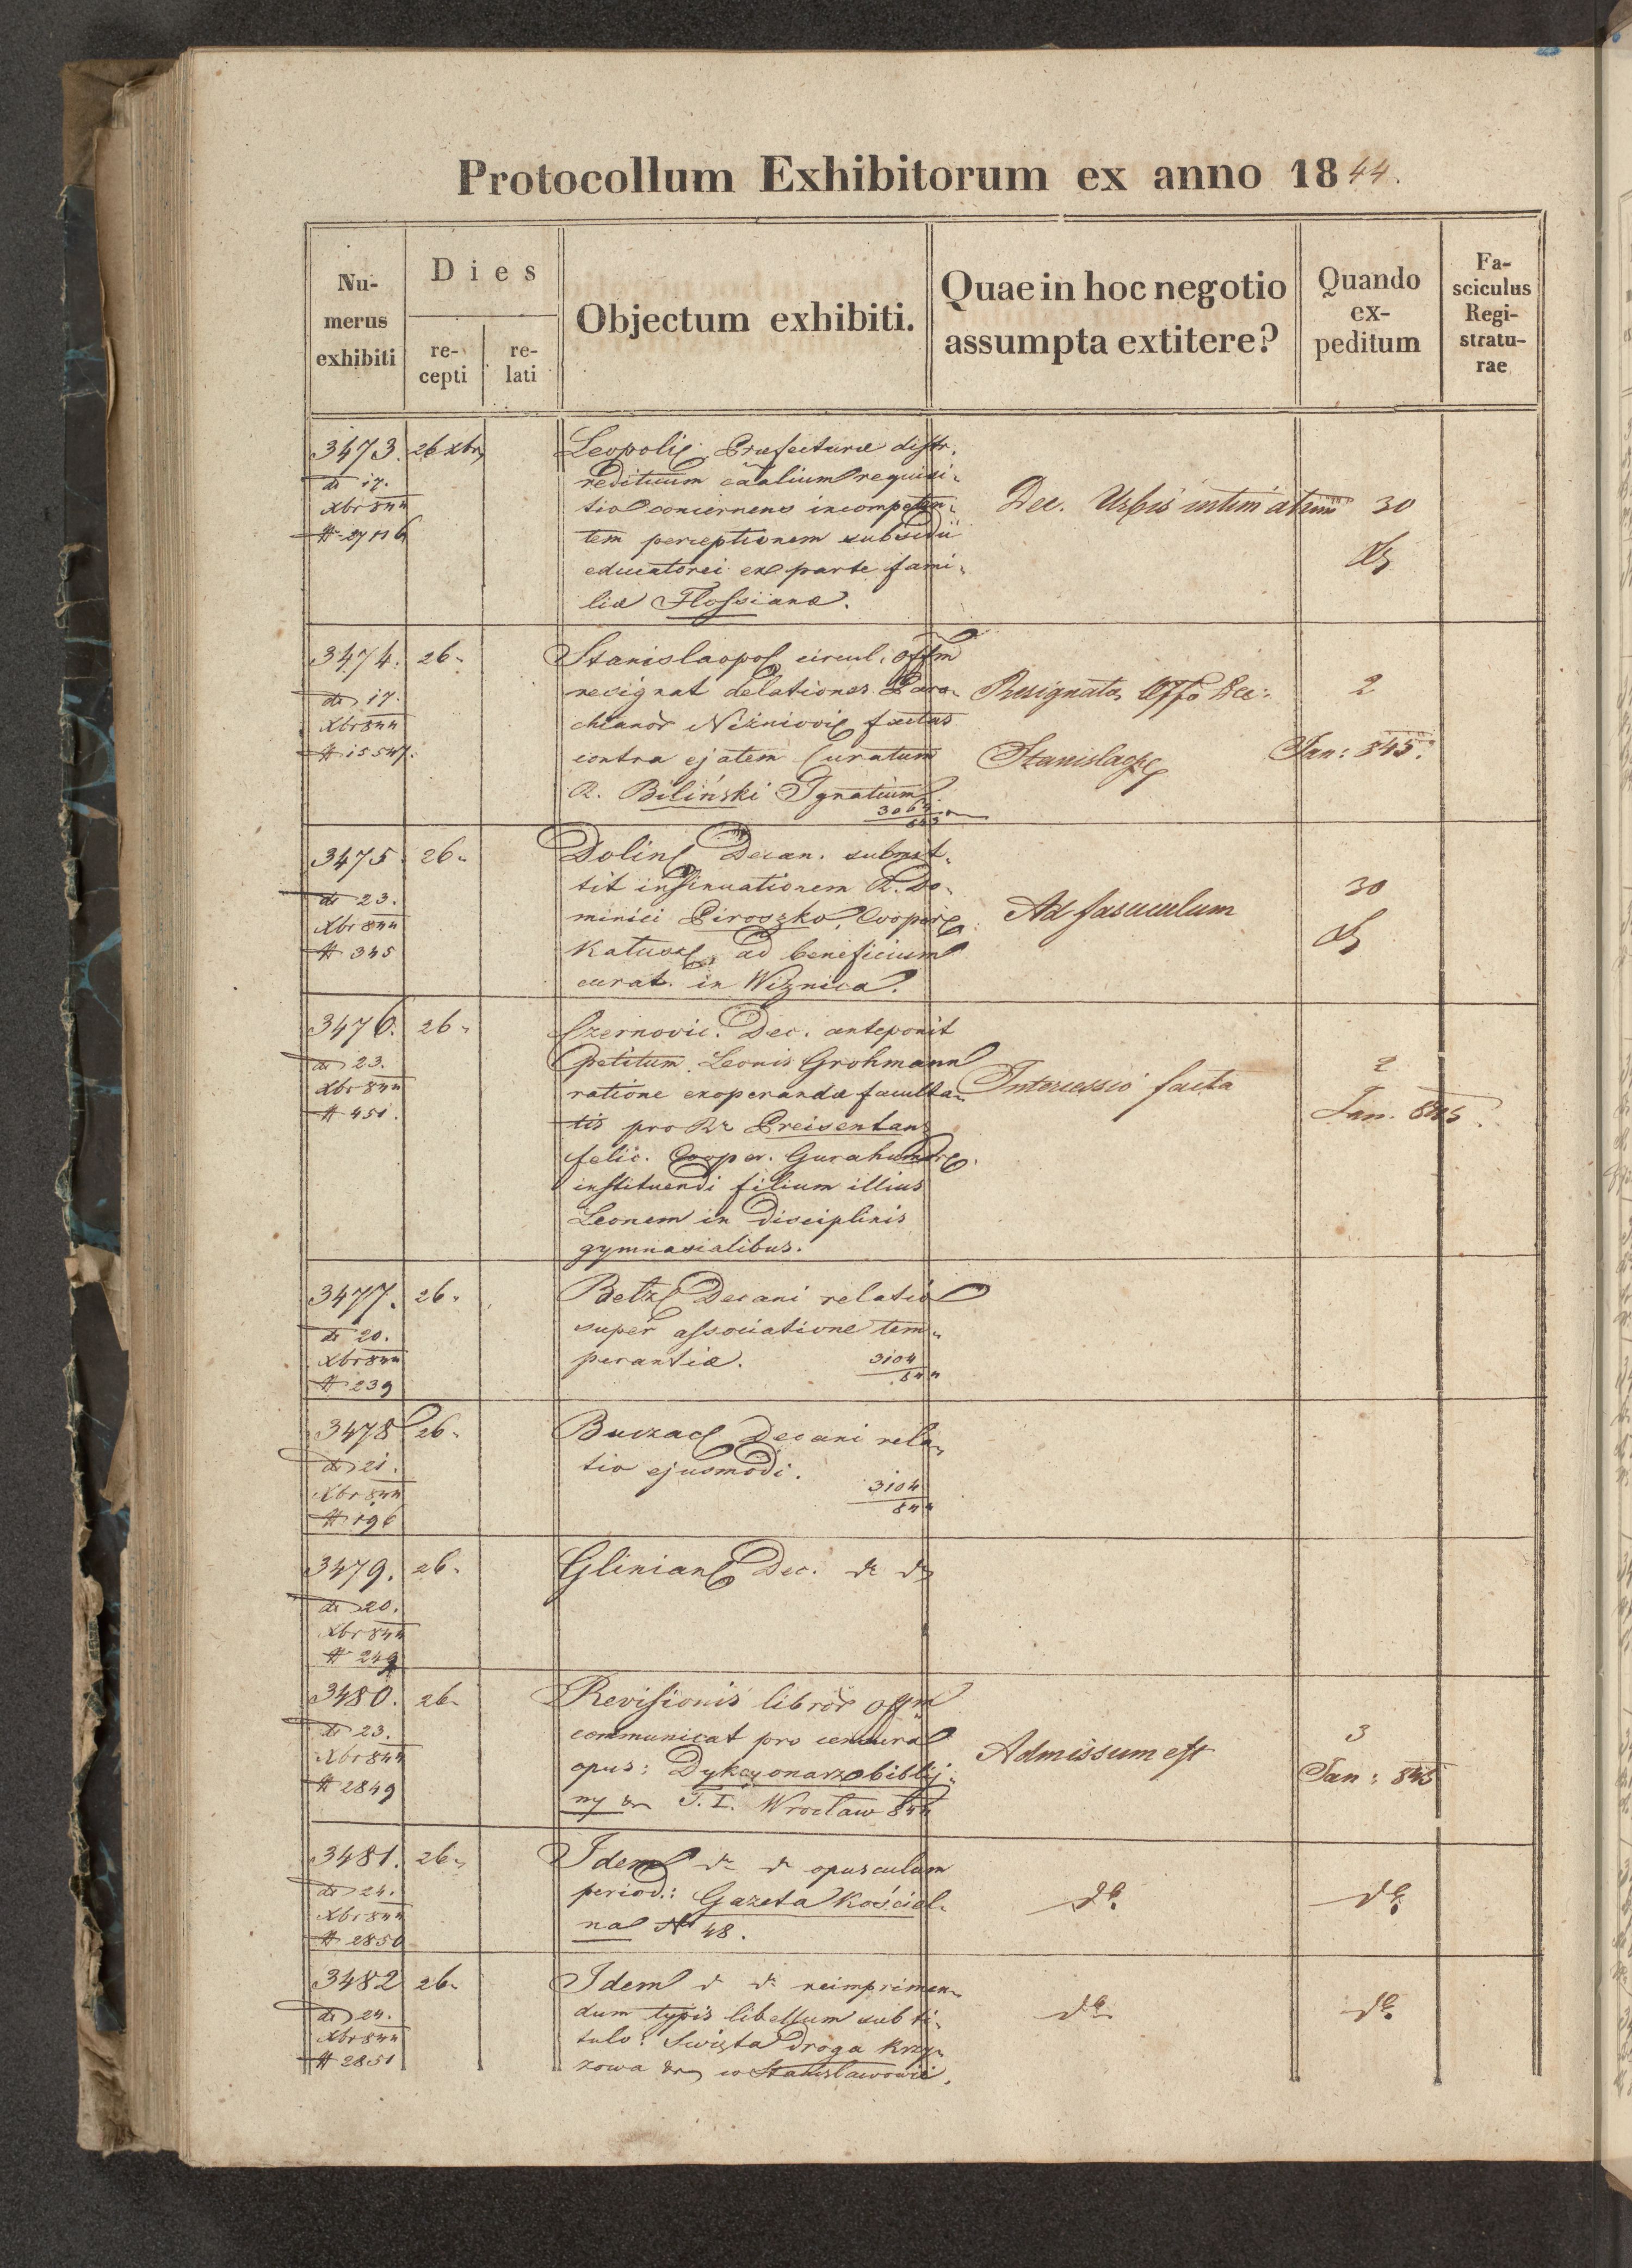 Protocollum Exhibitorum ex anno 1844.
Nu-
merus
exhibiti
Dies
re-
cepti
re-
lati
Objectum exhibiti.
Quae in hoc negotio
assumpta extitere?
Quando
ex-
peditum
Fa-
sciculus
Regi-
stratu-
rae
3473. 26 xbr
17.
Xbr 844
Leopol. Præfecturæ distr.
redituum caalium requisi-
tio concernens incompeten-
tem perceptionem subsidii
educatorei ex parte fami-
liæ Flossianæ.
Dec. Urbis intimatum
30
3474. 26.
17.
Xbr 844
# 15547.
Stanislaopol circul. offm
resignat delationes Paro-
chianor Niżniovi factas
contra ejatem Curatum
R. Biliński Ignatium
Resignata Offo Dec:
Stanislaop
2
Jan: 845.
3475 26.
23.
Xbr 844
# 345
Dolin Decan. submit-
tit insinuationem R. Do-
minici Piroszko, Cooper
Kalus ad beneficium
curat. in Wiznica.
Ad fasciculum
30
3476. 26.
23.
Xbr 844
# 451.
Czernovic. Dec. anteponit
petitum Leonis Grohmann
ratione exoperandæ faculta-
tis pro Rr Preisentanz
felic. Cooper. Gurahumor
instituendi filium illius
Leonem in disciplinis
gymnasialibus.
Intercessio facta
2
Jan. 845.
3477. 26.
20.
Xbr 844
# 239
Betz Decani relatio
super associatione tem-
perantiæ. 3104
844
3478 26.
21.
Xbr 844
# 196
Buczac Decani rela-
tio ejusmodi. 3104
844
3479. 26.
20.
Xbr 844
# 249
Glinian Dec. do do
3480. 26.
23.
Xbr 844
# 2849
Revisionis libror offm
communicat pro censura
opus: Dykcyonarz biblij-
ny T. I. Wrocław 844
Admissum est
3
Jan: 845
3481. 26.
24.
Xbr 844
# 2850
Idem do do opusculum
period.: Gazeta Kościel-
na No 48.
do
do
3482 26.
24.
Xbr 844
# 2851
Idem do do reimprimen-
dum typis libellum sub ti-
tulo: Swięta Droga Krzy-
zowa w Stanisławowie.
do
do